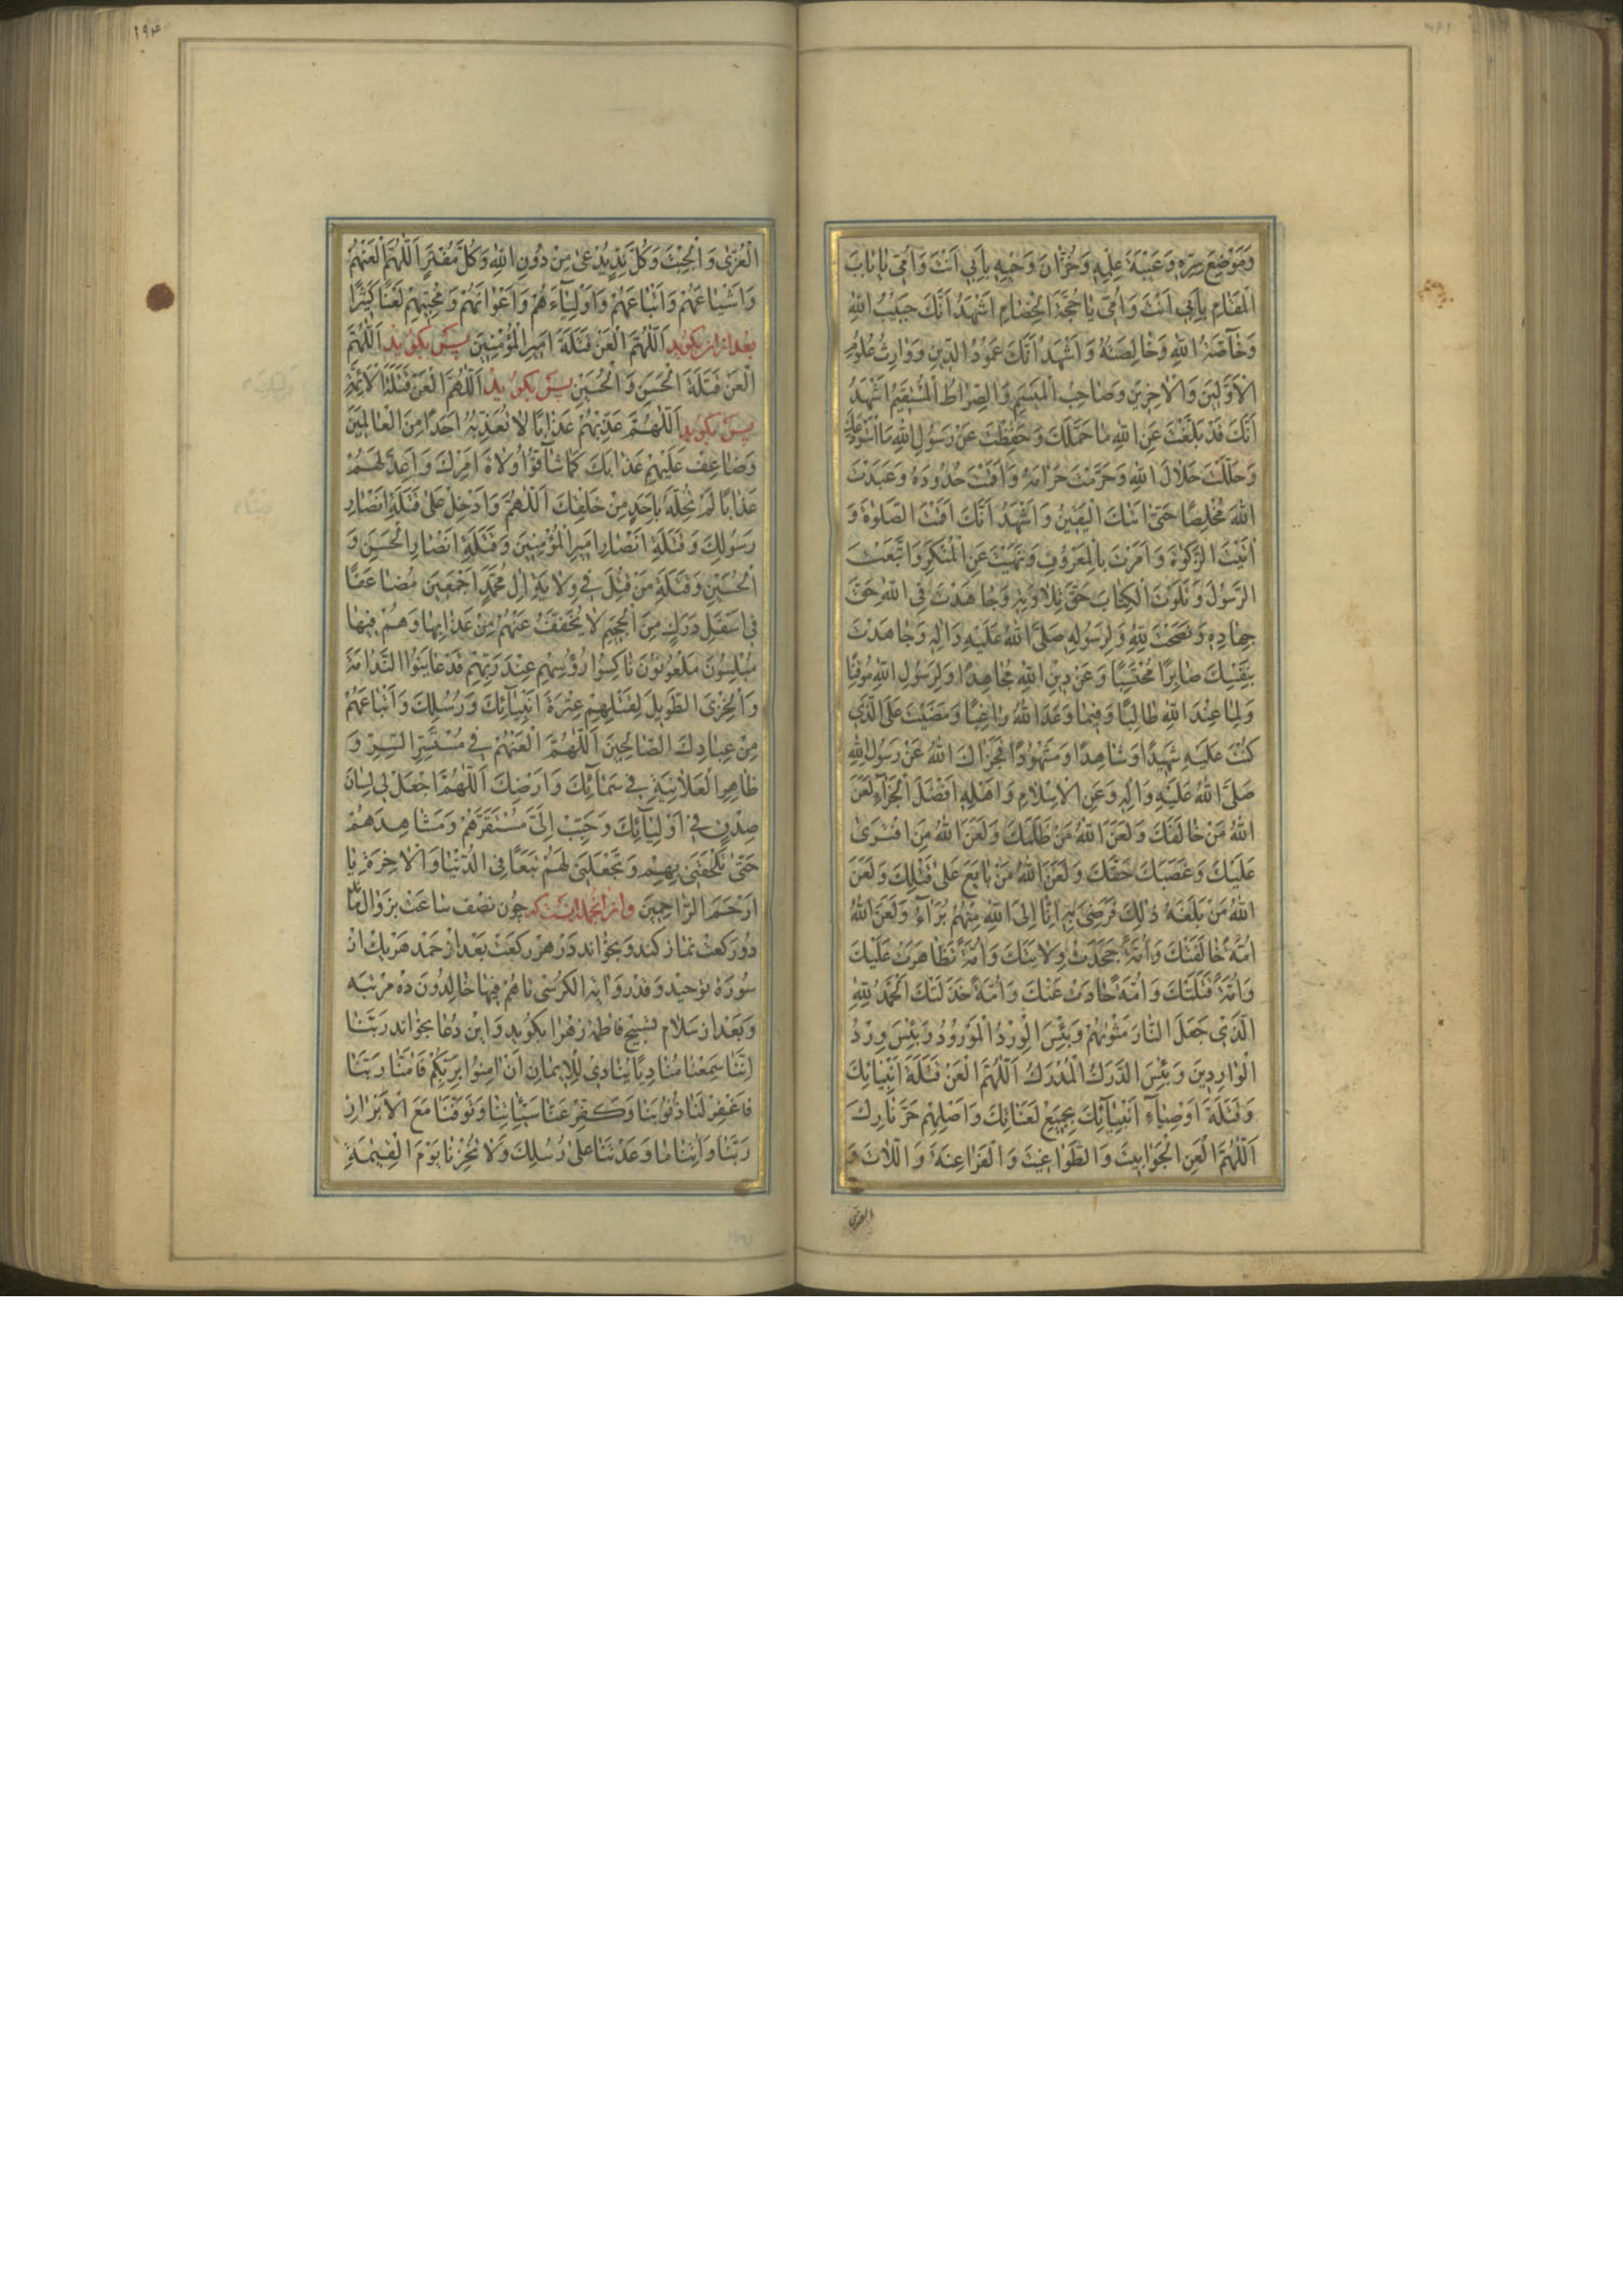 وَمَوْضِعَ سِرِّهِ وَعَيْبَةَ عِلْمِهِ وَخُزَّانَ وَحْيِهِ بِأَبِي اَنْتَ وَاُمّي يٰا بٰابَ
الْمَقٰامِ بِأَبِي اَنْتَ وَاُمّي يٰا حُجَّةَ الْخِصٰامِ اَشْهَدُ اَنَّكَ حَبيبُ اللهِ
وَخٰاصَّةُ اللهِ وَخٰالِصَتُهُ وَاَشْهَدُ اَنَّكَ عَمُودُ الدّينِ وَوٰارِثُ عُلُومِ
الْاَوَّلينَ وَالْاٰخِرينَ وَصٰاحِبُ الْميسَمِ وَالصِّرٰاطُ الْمُسْتَقيمُ اَشْهَدُ
اَنَّكَ قَدْ بَلَّغْتَ عَنِ اللهِ مٰا حَمَّلَكَ وَحَفِظْتَ عَنْ رَسُولِ اللهِ مَا اسْتَوْدَعَكَ
وَحَلَّلْتَ حَلٰالَ اللهِ وَحَرَّمْتَ حَرٰامَهُ وَاَقَمْتَ حُدُودَهُ وَعَبَدْتَ
اللهَ مُخْلِصًا حَتّىٰ اَتٰيكَ الْيَقينُ وَاَشْهَدُ اَنَّكَ اَقَمْتَ الصَّلٰوةَ وَ
اٰتَيْتَ الزَّكٰوةَ وَاَمَرْتَ بِالْمَعْرُوفِ وَنَهَيْتَ عَنِ الْمُنْكَرِ وَاتَّبَعْتَ
الرَّسُولَ وَتَلَوْتَ الْكِتٰابَ حَقَّ تِلٰاوَتِهِ وَجٰاهَدْتَ فِي اللهِ حَقَّ
جِهٰادِهِ وَنَصَحْتَ لِلّٰهِ وَلِرَسُولِهِ صَلَّى اللهُ عَلَيْهِ وَاٰلِهِ وَجٰاهَدْتَ
بِنَفْسِكَ صٰابِرًا مُحْتَسِبًا وَعَنْ دينِ اللهِ مُجٰاهِدًا وَلِرَسُولِ اللهِ مُوقِنًا
وَلِمٰا عِنْدَ اللهِ طٰالِبًا وَفيمٰا وَعَدَ اللهُ رٰاغِبًا وَمَضَيْتَ عَلَى الَّذي
كُنْتَ عَلَيْهِ شَهيدًا وَشٰاهِدًا وَمَشْهُودًا فَجَزٰاكَ اللهُ عَنْ رَسُولِ اللهِ
صَلَّى اللهُ عَلَيْهِ وَاٰلِهِ وَعَنِ الْاِسْلٰامِ وَاَهْلِهِ اَفْضَلَ الْجَزٰاءِ لَعَنَ
اللهُ مَنْ خٰالَفَكَ وَلَعَنَ اللهُ مَنْ ظَلَمَكَ وَلَعَنَ اللهُ مَنِ افْتَرىٰ
عَلَيْكَ وَغَصَبَكَ حَقَّكَ وَلَعَنَ اللهُ مَنْ بٰايَعَ عَلىٰ قَتْلِكَ وَلَعَنَ
اللهُ مَنْ بَلَغَهُ ذٰلِكَ فَرَضِيَ بِهِ اِنّٰا اِلَى اللهِ مِنْهُمْ بُرَاٰءُ وَلَعَنَ اللهُ
اُمَّةً خٰالَفَتْكَ وَاُمَّةً جَحَدَتْ وِلٰايَتَكَ وَاُمَّةً تَظٰاهَرَتْ عَلَيْكَ
وَاُمَّةً قَتَلَتْكَ وَاُمَّةً حٰادَتْ عَنْكَ وَاُمَّةً خَذَلَتْكَ الْحَمْدُ لِلّٰهِ
الَّذي جَعَلَ النّٰارَ مَثْوٰيهُمْ وَبِئْسَ الْوِرْدُ الْمَوْرُودُ وَبِئْسَ وِرْدُ
الْوٰارِدينَ وَبِئْسَ الدَّرَكُ الْمُدْرَكُ اَللّٰهُمَّ الْعَنْ قَتَلَةَ اَنْبِيٰائِكَ
وَقَتَلَةَ اَوْصِيٰاءِ اَنْبِيٰائِكَ بِجَميعِ لَعَنٰاتِكَ وَاَصْلِهِمْ حَرَّ نٰارِكَ
اَللّٰهُمَّ الْعَنِ الْجَوٰابيتَ وَالطَّوٰاغيتَ وَالْفَرٰاعِنَةَ وَاللّٰاتَ وَ
العزى
١٩٤
الْعُزّىٰ وَالْجِبْتَ وَكُلَّ نِدٍّ يُدْعىٰ مِنْ دُونِ اللهِ وَكُلَّ مُفْتَرٍ اَللّٰهُمَّ الْعَنْهُمْ
وَاَشْيٰاعَهُمْ وَاَتْبٰاعَهُمْ وَاَوْلِيٰاءَهُمْ وَاَعْوٰانَهُمْ وَمُحِبّيهِمْ لَعْنًا كَثيرًا
بعد ازان بكويد اَللّٰهُمَّ الْعَنْ قَتَلَةَ اَميرِ الْمُؤْمِنينَ پس بكويد اَللّٰهُمَّ
الْعَنْ قَتَلَةَ الْحَسَنِ وَالْحُسَيْنِ پس بكويد اَللّٰهُمَّ الْعَنْ قَتَلَةَ الْاَئِمَّةِ
پس بكويد اَللّٰهُمَّ عَذِّبْهُمْ عَذٰابًا لٰا تُعَذِّبُهُ اَحَدًا مِنَ الْعٰالَمينَ
وَضٰاعِفْ عَلَيْهِمْ عَذٰابَكَ كَمٰا شٰاقُّوا وُلٰاةَ اَمْرِكَ وَاَعِدَّ لَهُمْ
عَذٰابًا لَمْ تُحِلَّهُ بِاَحَدٍ مِنْ خَلْقِكَ اَللّٰهُمَّ وَاَدْخِلْ عَلىٰ قَتَلَةِ اَنْصٰارِ
رَسُولِكَ وَقَتَلَةِ اَنْصٰارِ اَميرِ الْمُؤْمِنينَ وَقَتَلَةِ اَنْصٰارِ الْحَسَنِ وَ
الْحُسَيْنِ وَقَتَلَةِ مَنْ قُتِلَ في وِلٰايَةِ اٰلِ مُحَمَّدٍ اَجْمَعينَ عَذٰابًا مُضٰاعَفًا
في اَسْفَلِ دَرَكٍ مِنَ الْجَحيمِ لٰا يُخَفَّفُ عَنْهُمْ مِنْ عَذٰابِهٰا وَهُمْ فيهٰا
مُبْلِسُونَ مَلْعُونُونَ نٰاكِسُوا رُؤُسِهِمْ عِنْدَ رَبِّهِمْ قَدْ عٰايَنُوا النَّدٰامَةَ
وَالْخِزْيَ الطَّويلَ لِقَتْلِهِمْ عِتْرَةَ اَنْبِيٰائِكَ وَرُسُلِكَ وَاَتْبٰاعَهُمْ
مِنْ عِبٰادِكَ الصّٰالِحينَ اَللّٰهُمَّ الْعَنْهُمْ في مُسْتَسِرِّ السِّرِّ وَ
ظٰاهِرِ الْعَلٰانِيَةِ في سَمٰائِكَ وَاَرْضِكَ اَللّٰهُمَّ اجْعَلْ لي لِسٰانَ
صِدْقٍ في اَوْلِيٰائِكَ وَحَبِّبْ اِلَيَّ مُسْتَقَرَّهُمْ وَمَشٰاهِدَهُمْ
حَتّىٰ تُلْحِقَني بِهِمْ وَتَجْعَلَني لَهُمْ تَبَعًا فِي الدُّنْيٰا وَالْاٰخِرَةِ يٰا
اَرْحَمَ الرّٰاحِمينَ وازانجمله آنست كه چون نصف ساعت بزوال ماند
دو ركعت نماز كند و بخواند در هر ركعت بعد از حمد هر يك از
سوره توحيد و قدر و اٰية الكرسى تا هم فيها خالدون ده مرتبه
و بعد از سلام تسبيح فاطمه زهرا بكويد و اين دعا بخواند رَبَّنٰا
اِنَّنٰا سَمِعْنٰا مُنٰادِيًا يُنٰادي لِلْايمٰانِ اَنْ اٰمِنُوا بِرَبِّكُمْ فَاٰمَنّٰا رَبَّنٰا
فَاغْفِرْ لَنٰا ذُنُوبَنٰا وَكَفِّرْ عَنّٰا سَيِّئٰاتِنٰا وَتَوَفَّنٰا مَعَ الْاَبْرٰارِ
رَبَّنٰا وَاٰتِنٰا مٰا وَعَدْتَنٰا عَلىٰ رُسُلِكَ وَلٰا تُخْزِنٰا يَوْمَ الْقِيٰمَةِ